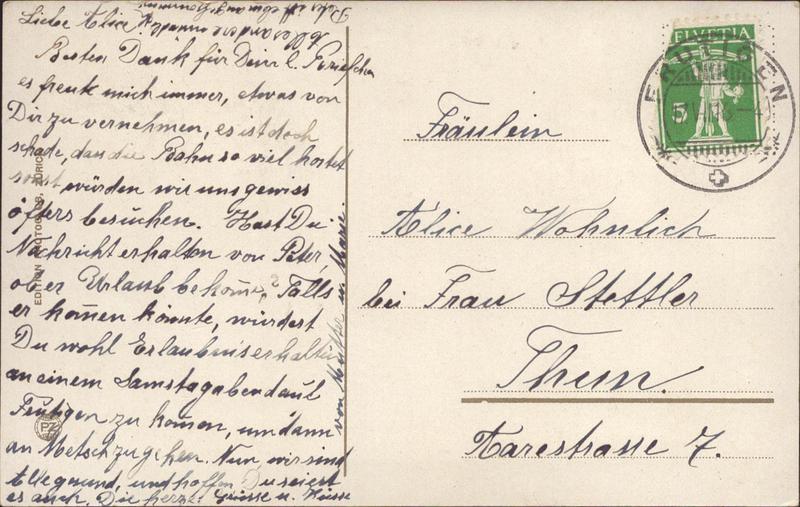 Liebe Alice
Besten Dank für Dein l. Briefchen
es freut mich immer, etwas von
Dir zu vernehmen, es ist doch
schade, das die Bahn so viel kostet
sonst würden wir uns gewiss
öfters besuchen. Hast Du
Nachricht erhalten von Peter,
ob er Urlaub bekome? Falls
er komen könnte, würdest
Du wohl Erlaubnis erhalten
an einem Samstagabend auf
Frutigen zu komen, um dann
an Metsch zu gehen. Nun wir sind
Alle gesund, und hoffen Du seiest
es auch. Die herzl. Grüsse u. Küsse
von Mutter u. Marie.
Peter ist
EDITION PHOTOGLOB, ZÜRICH
PZ
HELVETIA
5
FRUTIGEN
Fräulein
Alice Wohnlich
bei Frau Stettler
Thun.
Aarestrasse 7.